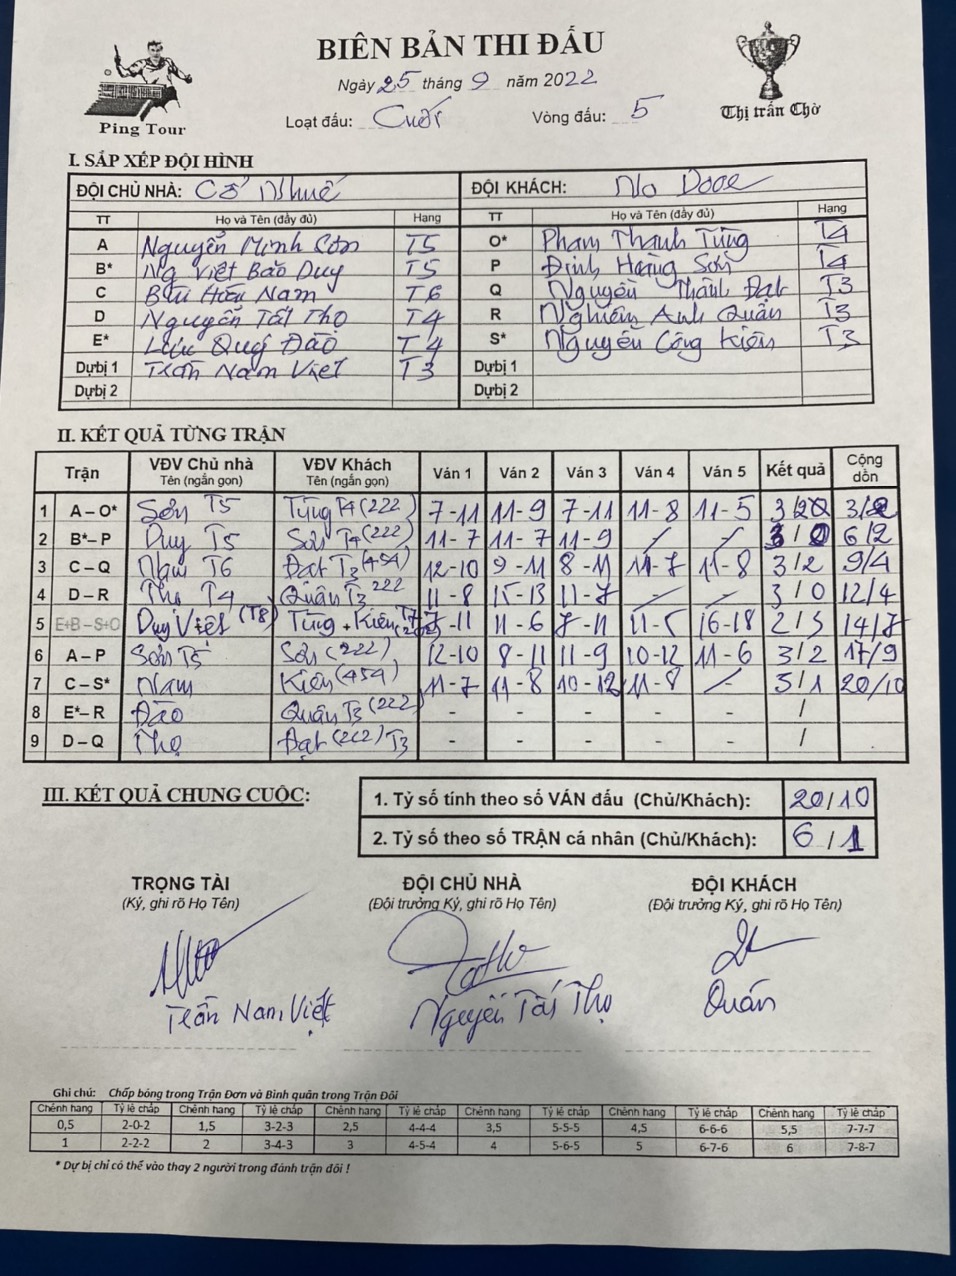 BIÊN BẢN THI ĐẤU
Ngày 25 tháng 9 năm 2022
Loạt đấu: Cuối Vòng đấu: 5
Ping Tour
Thị trấn Chờ
I. SẮP XẾP ĐỘI HÌNH
ĐỘI CHỦ NHÀ: Cổ Nhuế ĐỘI KHÁCH: No
TT Họ và Tên (đầy đủ) Hạng TT Họ và Tên (đầy đủ) Hạng
A Nguyễn Minh Sơn T5 O* Phạm Thanh Tùng T4
B* Ng Việt Bảo Duy T5 P Đinh Hoàng Sơn T4
C Bùi Hoài Nam T6 Q Nguyễn Thành Đạt T3
D Nguyễn Tất Thọ T4 R Nghiêm Anh Quân T3
E* Lưu Quý Đào T4 S* Nguyễn Công Kiên T3
Dự bị 1 Trần Nam Việt T3 Dự bị 1
Dự bị 2 Dự bị 2
II. KẾT QUẢ TỪNG TRẬN
Trận VĐV Chủ nhà Tên (ngắn gọn) VĐV Khách Tên (ngắn gọn) Ván 1 Ván 2 Ván 3 Ván 4 Ván 5 Kết quả Cộng dồn
1 A – O* Sơn T5 Tùng T4 (222) 7-11 11-9 7-11 11-8 11-5 3/2 3/2
2 B*– P Duy T5 Sơn T4 (222) 11-7 11-7 11-9 - - 3/0 6/2
3 C – Q Nam T6 Đạt T3 (454) 12-10 9-11 8-11 11-7 11-8 3/2 9/4
4 D – R Thọ T4 Quân T3 222 11-8 15-13 11-7 - - 3/0 12/4
5 E+B – S+O Duy Việt (T8) Tùng + Kiên 7-11 11-6 7-11 11-5 16-18 2/3 14/7
6 A – P Sơn T5 Sơn (222) 12-10 8-11 11-9 10-12 11-6 3/2 17/9
7 C – S* Nam Kiên (454) 11-7 11-8 10-12 11-8 - 3/1 20/10
8 E*– R Đào Quân T3 (222) - - - - - /
9 D – Q Thọ Đạt (222) T3 - - - - - /
III. KẾT QUẢ CHUNG CUỘC:
1. Tỷ số tính theo số VÁN đấu (Chủ/Khách): 20/10
2. Tỷ số theo số TRẬN cá nhân (Chủ/Khách): 6/1
TRỌNG TÀI ĐỘI CHỦ NHÀ ĐỘI KHÁCH
(Ký, ghi rõ Họ Tên) (Đội trưởng Ký, ghi rõ Họ Tên) (Đội trưởng Ký, ghi rõ Họ Tên)
Trần Nam Việt Nguyễn Tất Thọ Quân
Ghi chú: Chấp bóng trong Trận Đơn và Bình quân trong Trận Đôi
Chênh hạng Tỷ lệ chấp Chênh hạng Tỷ lệ chấp Chênh hạng Tỷ lệ chấp Chênh hạng Tỷ lệ chấp Chênh hạng Tỷ lệ chấp Chênh hạng Tỷ lệ chấp
0,5 2-0-2 1,5 3-2-3 2,5 4-4-4 3,5 5-5-5 4,5 6-6-6 5,5 7-7-7
1 2-2-2 2 3-4-3 3 4-5-4 4 5-6-5 5 6-7-6 6 7-8-7
* Dự bị chỉ có thể vào thay 2 người trong đánh trận đôi !